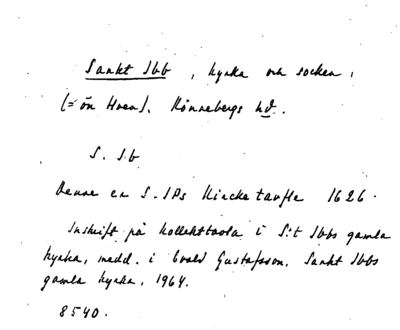 Sankt Ibb, kyrka och socken,
(= ön Hven). Rönnebergs hd.
S. Ib
Denne er S. IPs Kircke taufle 1626.
Inskrift på kollekttavla i S:t Ibbs gamla
kyrka, medd. i Evald Gustafsson. Sankt Ibbs
gamla kyrka. 1964.
8540.